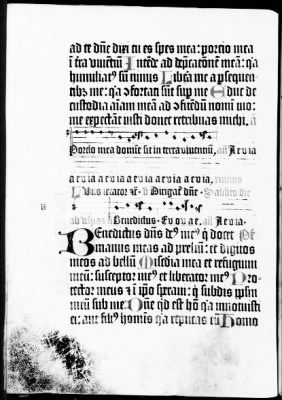 ad te dñe dixi tu es spes mea: portio mea
ĩ tra viuentiũ Intẽde ad depcationẽ meã: qꝛa
humiliatꝰ sũ nimis Libera me a psequen-
tibꝫ me: qꝛa ꝯfortati sũt sup me Educ de
custodia aĩam meã ad ꝯfitẽdũ nomĩ tuo:
me expectãt iusti donec retribuas michi. ã
Portio mea domine sit in terra viuentiũ, añ Aeuia
aeuia aeuia aeuia aeuia aeuia,
ad vesꝑas Benedictus. Euouae. añ Aeuia.
Benedictus dñs deꝰ meꝰ q̃ docet
manus meas ad preliũ: et digitos
meos ad bellũ Misericordia mea et refugium
meũ: susceptor meꝰ et liberator meꝰ Pro-
tector meus et ĩ ipo speraui: q̃ subdis pplm
meũ sub me Dñe qd est hõ qꝛa innotuisti
ei: aut filiꝰ homĩs qꝛa reputas eũ Homo